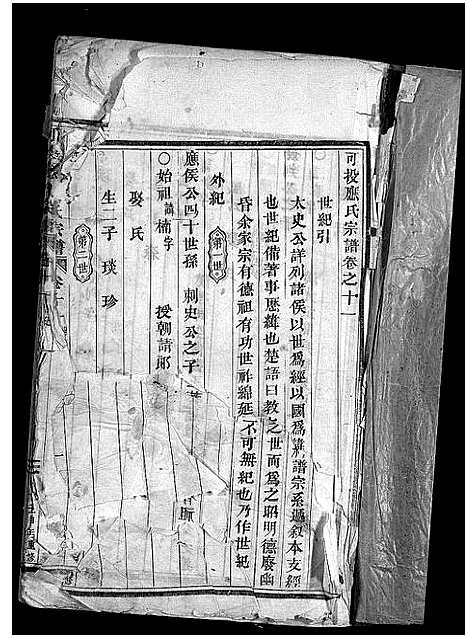 可投應氏宗譜卷之十一
世紀引
太史公詳列諸侯以世爲經以國爲緯譜宗系逓叙本支經
也世紀備著事歷緯也楚語曰教之世而爲之昭明德廢幽
昏余家宗有德祖有功世祚綿延不可無紀也乃作世紀
外紀
第一世
應侯公四十世孫 刺史公之子
○始祖諱楠字 授朝請郎
娶氏
生二子 琰 珍
第二世